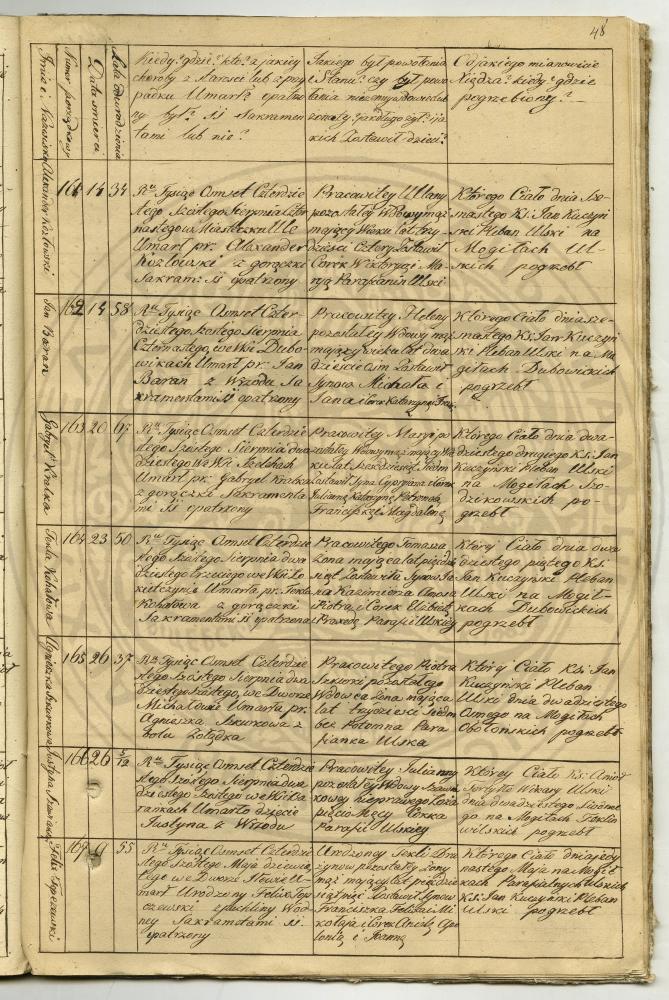 48
Imie i Nazwisko
Numer porządkowy
Data śmierci
Lata urodzenia
Kiedy? gdzie? kto? z jakiey
choroby z starości lub z przy
padku Umarł? opatrzo
ny był? SS Sakramen
tami lub nie?
Jakiego był powołania
i Stanu? czy był
żył?
kich Zostawił dzieci?
Od jakiego mianowicie
Xiędza? kiedy? gdzie
pogrzebiony?
Alexander Kozłowski
161 14 34
Rku Tysiąc Omset Czterdzie
stego Szóstego Sierpnia Czter
nastego w Miasteczku Ule
Umarł pr. Alexander
Kozłowski z gorączki
Sakram: SS opatrzony
Pracowitey Ulany
pozostałey Wdowy mąż
mający Wieku lat trzy
dzieści Cztery Zostawił
Corek Wiktoryą i Ma
ryą Parafianin Ulski
Którego Ciało dnia Sze
snastego Ks: Jan Kuczyń
ski Pleban Ulski na
Mogiłach Ul
skich pogrzebł
Jan Baran
162 14 58
Rku Tysiąc Omset Czter
dziestego Szóstego Sierpnia
Czternastego, we Wsi Dubo
wikach Umarł pr. Jan
Baran z Wrzodu Sa
kramentami SS opatrzony
Pracowitey Heleny
pozostałey Wdowy mąż
mający wieku lat
Zostawił
Synow Michała i
Jana i Corek Katarzynę
Którego Ciało dnia sze
snastego Ks: Jan Kuczyń
ski Pleban Ulski na Mo
giłach Dubowickich
pogrzebł
Gabryel Kralka
163 20 67
Rku Tysiąc Omset Czterdzie
stego Szóstego Sierpnia dwu
dziestego We Wsi
Umarł pr. Gabryel Kralka
z gorączki Sakramenta
mi SS opatrzony
Pracowitey Maryi po
zostałey Wdowy mąż mający Wie
ku lat Sześćdziesiąt Siedm
Zostawił Syna Cypryana i Corek
Juliannę Katarzynę Petronelę
Franciszkę i Magdalenę
Którego Ciało dnia dwa
dziestego drugiego Ks: Jan
Kuczyński Pleban Ulski
na Mogiłach
po
grzebł
Tekla Kohałowa
164 23 50
Rku Tysiąc Omset Czterdzie
stego Szóstego Sierpnia dwu
dziestego trzeciego we Wsi
Umarła pr. Tekla
Kohałowa z gorączki
Sakramentami SS opatrzona
Pracowitego Tomasza
Żona mająca lat pięćdzie
siąt Zostawiła Synow Ja
na Kazimierza Amosa
Piotra i Corek Elżbietę
Praxedę Parafii Ulskiey
Którey Ciało dnia dwu
dziestego piątego Ks:
Jan Kuczyński Pleban
Ulski na Mogił
kach Dubowickich
pogrzebł
Agnieszka Szkurkowa
165 26 37
Rku Tysiąc Omset Czterdzie
stego Szóstego Sierpnia dwu
dziestego Szóstego, we Dworze
Michałowie Umarła pr.
Agnieszka Szkurkowa z
bolu Żołądka
Pracowitego Piotra
Szkurki pozostałego
Wdowca Żona mająca
lat trzydzieści siedm
bez Potomna Para
fianka Ulska
Którey Ciało Ks: Jan
Kuczyński Pleban
Ulski dnia dwudziestego
Osmego na Mogiłach
Obolonskich pogrzebł
Justyna
166 26 5/12
Rku Tysiąc Omset Czterdzie
stego Szóstego Sierpnia dwu
dziestego Szóstego we Wsi
Umarło dziecie
Justyna z Wrzodu
Pracowitey Julianny
pozostałey Wdowy
nieprawego Łoża
pięcio Córka
Parafii Ulskiey
Którey Ciało Ks:
Wikary Ulski
dnia dwudziestego Siódme
go na Mogiłach
pogrzebł
Felix Topczewski
167 9 55
Rku Tysiąc Omset Czterdzie
stego Szóstego Maja dziewią
tego we Dworze Nowie U
marł Urodzony Felix Top
czewski z puchliny Wod
ney Sakramentami SS.
opatrzony
Urodzoney Tekli
pozostałey Żony
mąż mający lat pięćdzie
siąt pięć Zostawił Synow
Franciszka Felixa i Mi
kołaja i Corek Anielę Apo
lonią i Joannę
Którego Ciało dnia jede
nastego Maja na Mogił
kach Parafialnych Ulskich
Ks: Jan Kuczyński Pleban
Ulski pogrzebł